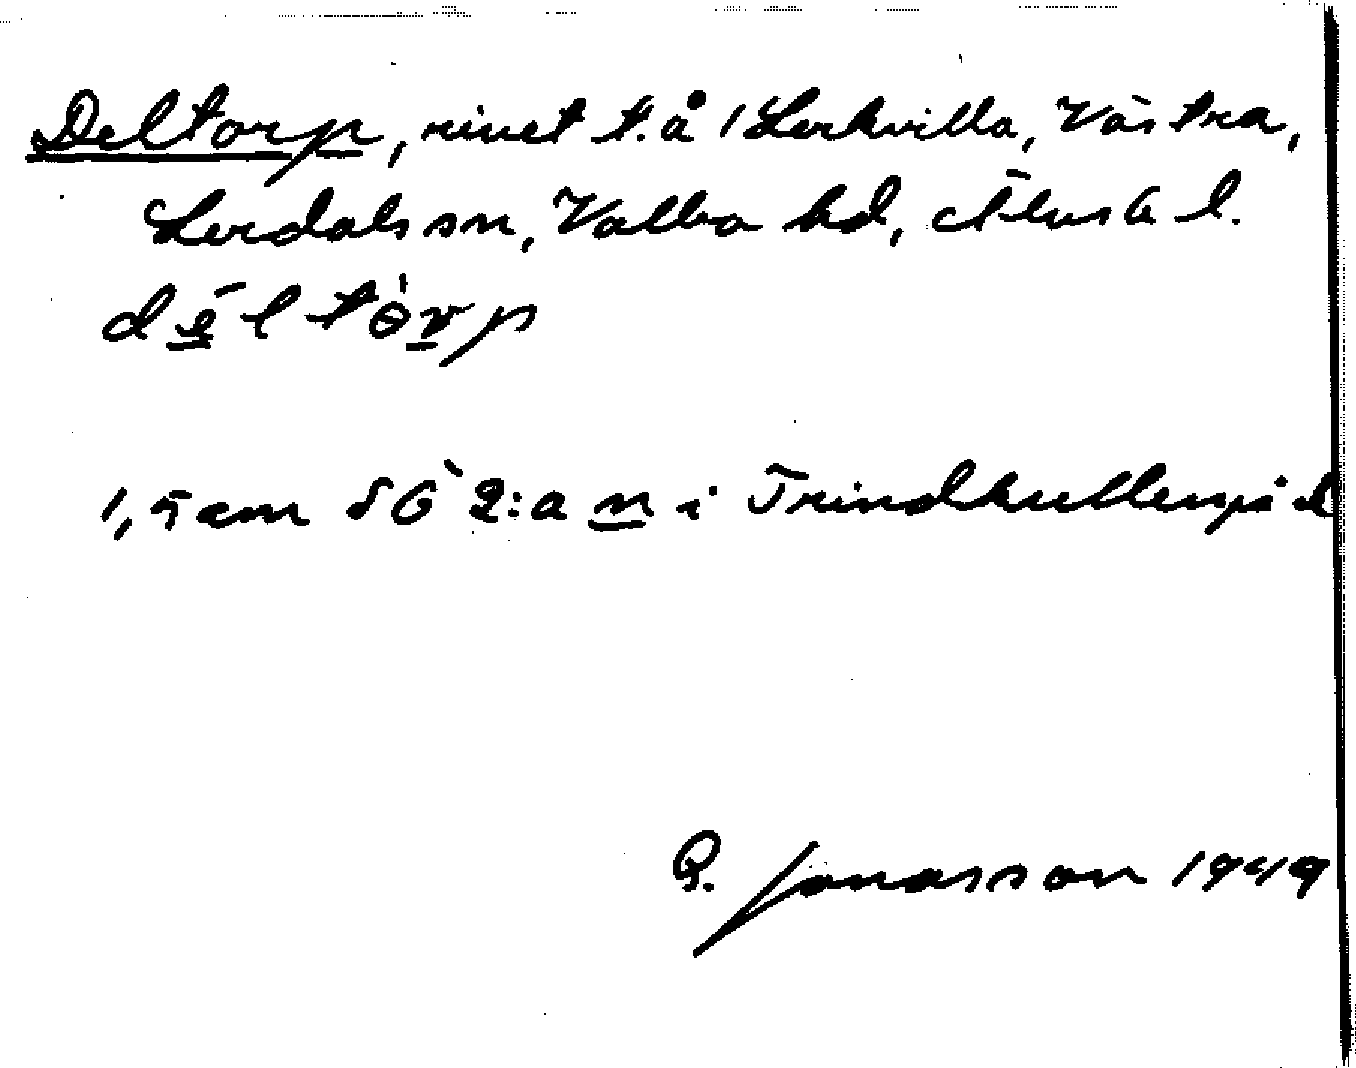 Deltorp, rivet t. å 1 Lerkvilla, Västra,
Lerdals sn, Valbo hd, Älvsb l.
1,5 cm SG 2:a n i Trindkullen på
P. Jonasson 1949